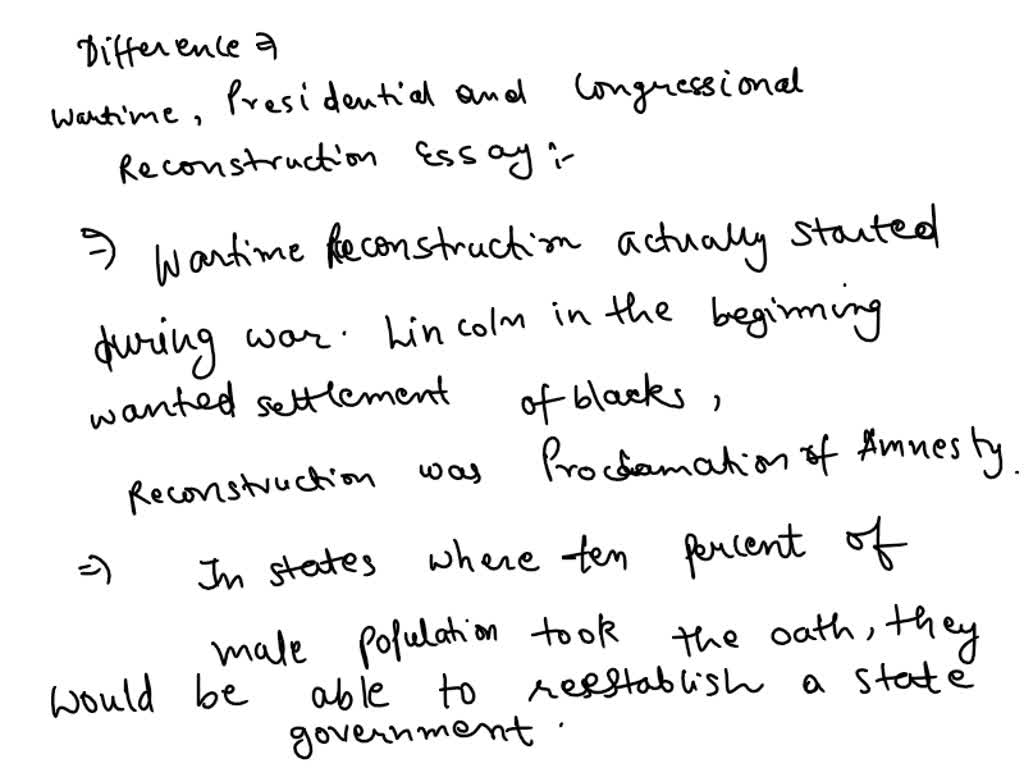 Difference ⇒
Wartime, Presidential and Congressional
Reconstruction Essay :-
⇒ Wartime Reconstruction actually started
during war. Lincoln in the beginning
wanted settlement of blacks,
Reconstruction was Proclamation of Amnesty.
⇒ In states where ten percent of
male population took the oath, they
would be able to reestablish a state
government.